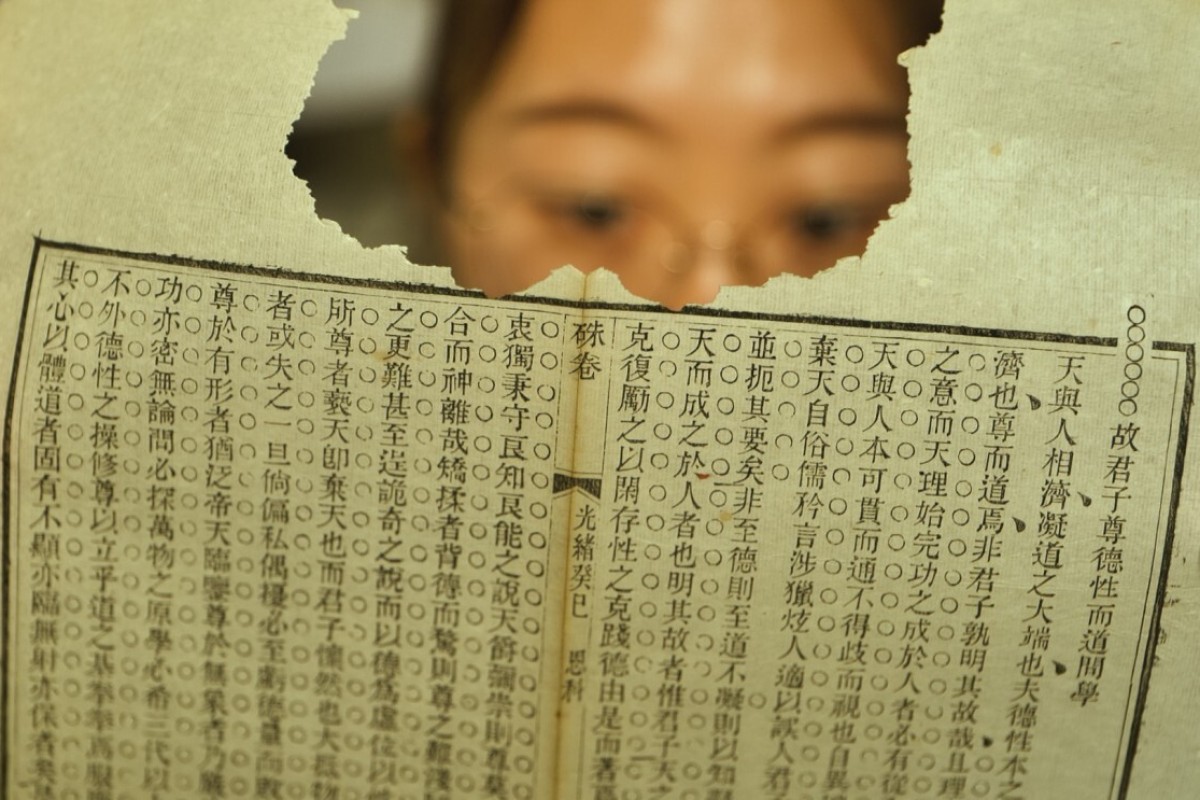 故君子尊德性而道問學
天與人相濟凝道之大端也夫德性本之
濟也尊而道焉非君子孰明其故哉且理
之意而天理始完功之成於人者必有從
天與人本可貫而通不得歧而視也自異
棄天自俗儒矜言涉獵炫人適以誤人君
並扼其要矣非至德則至道不凝則以知
天而成之於人者也明其故者惟君子天之
克復勵之以閑存性之克踐德由是而著
硃卷
光緒癸巳 恩科
衷獨秉守良知良能之說天爵彌崇則尊莫
合而神離哉矯揉者背德而馳則尊之難
之更難甚至逞詭奇之說而以德為虛位以
所尊者褻天卽棄天也而君子懍然也大抵物
者或失之一旦倘偏私偶擾必至虧德量而
尊於有形者猶泛帝天臨鑒尊於無象者乃
功亦密無論問必探萬物之原學必希三代以
不外德性之操修尊以立乎道之基
其心以體道者固有不顯亦臨無射亦保者矣